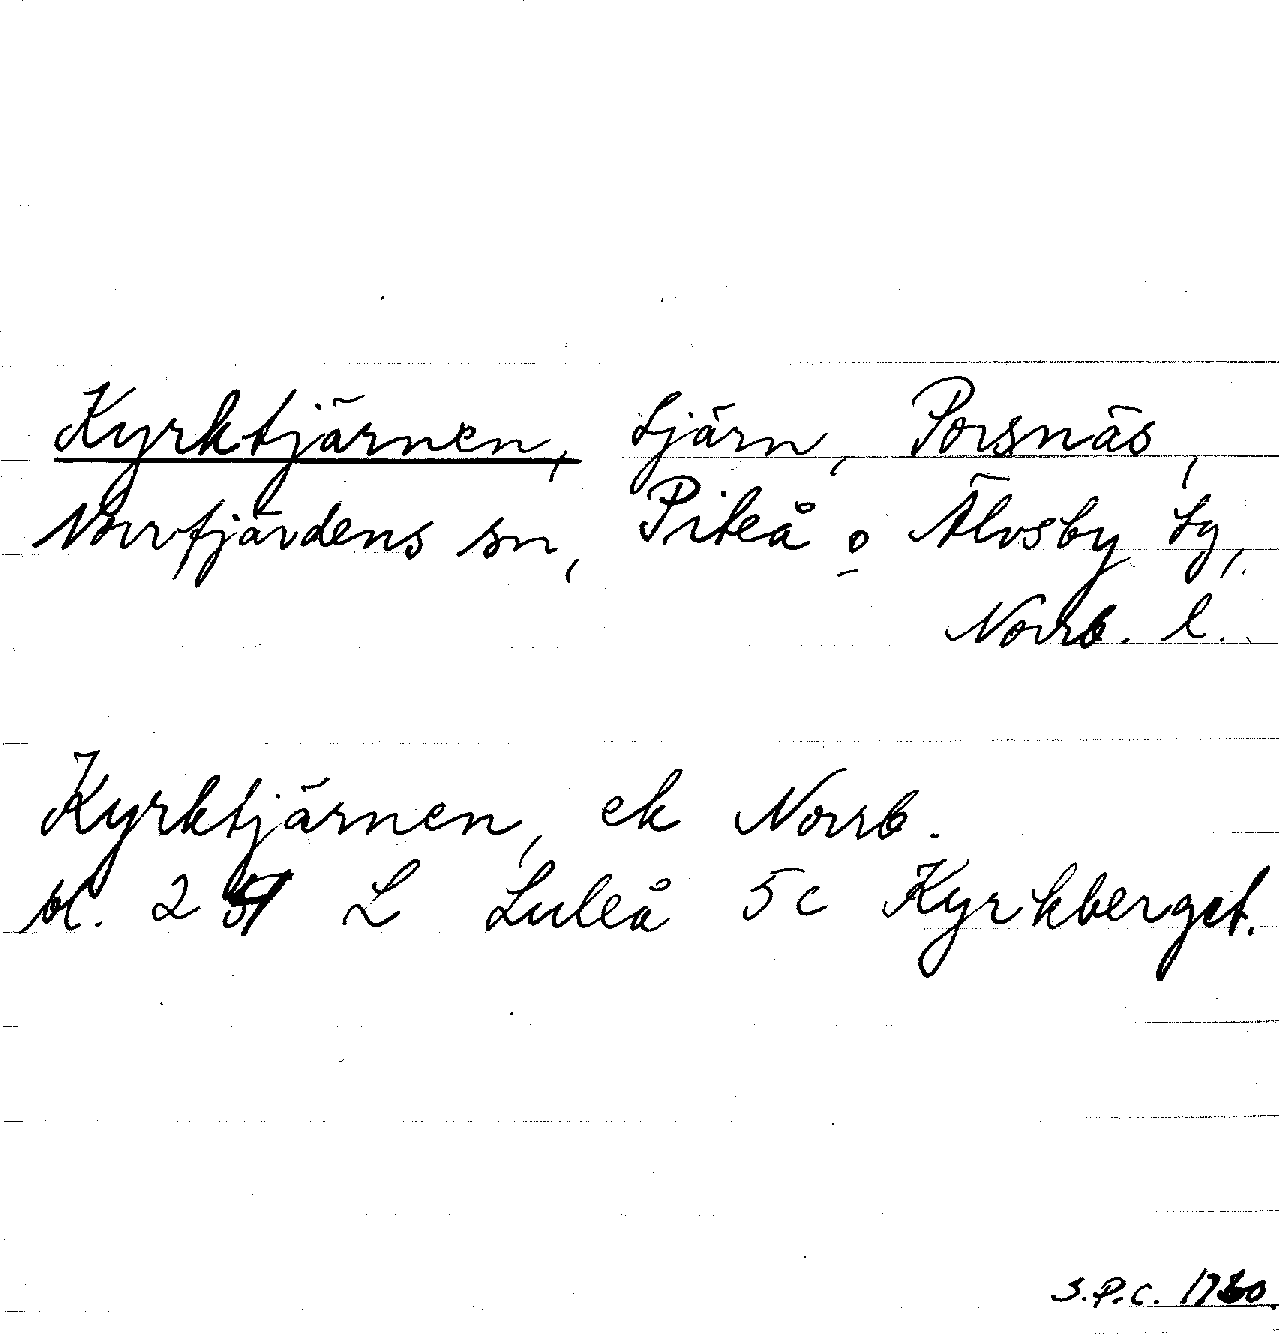 Kyrktjärnen, tjärn, Porsnäs,
Norrfjärdens sn, Piteå o Älvsby tg,
Norrb. l.
Kyrktjärnen, ek Norrb.
bl. 2 L Luleå 5c Kyrkberget.
S.P.C.